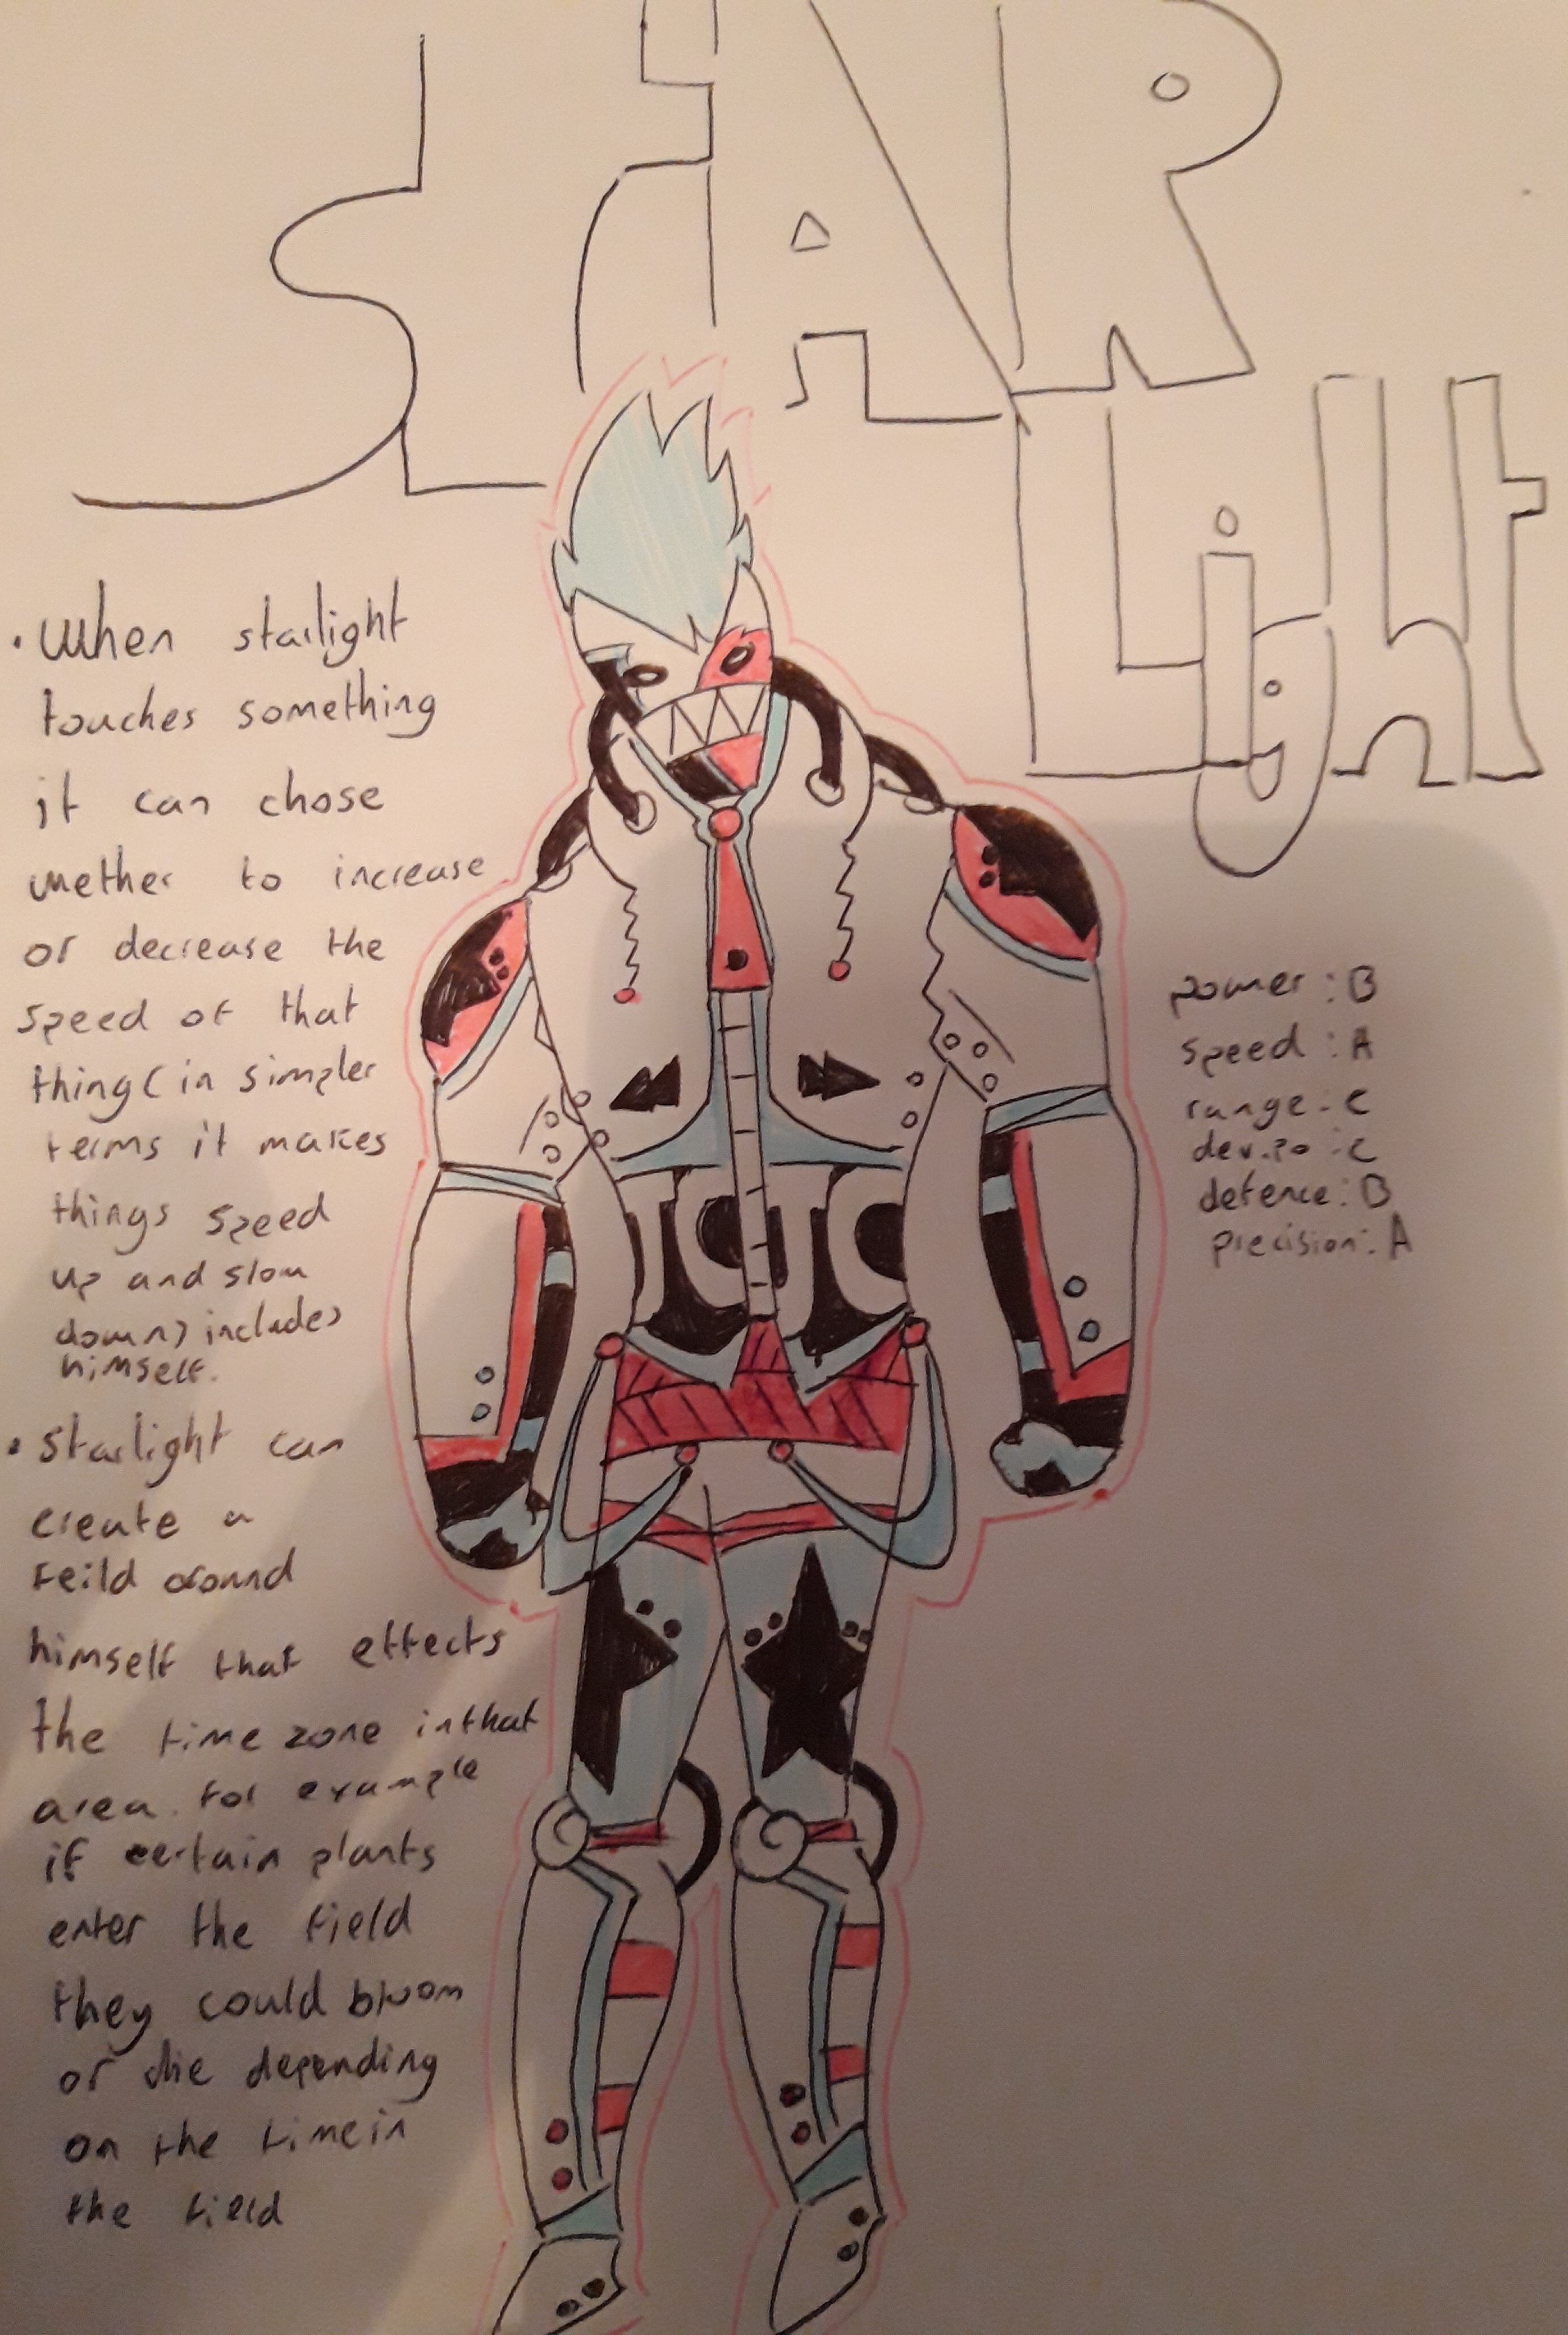 STAR
LIGht
• When starlight
touches something
it can chose
wether to increase
or decrease the
speed of that
thing (in simpler
terms it makes
things speed
up and slow
down) includes
himself.
• Starlight can
create a
feild around
himself that effects
the time zone in that
area. for example
if certain plants
enter the field
they could bloom
or die depending
on the time in
the field
power : B
speed : A
range : C
dev.po : C
defence : B
precision : A
JC JC